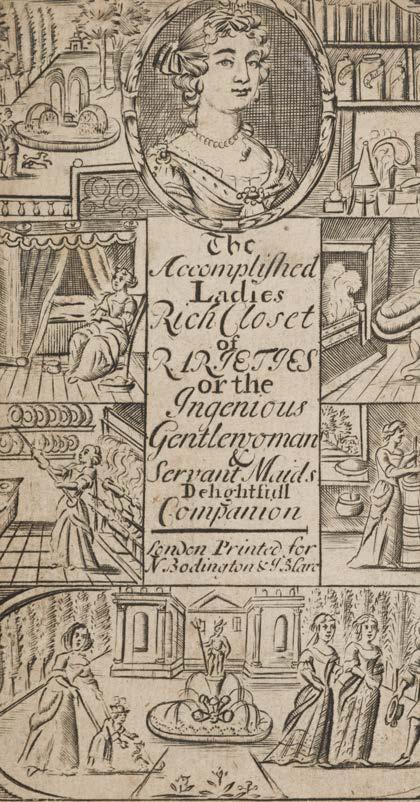 The
Accomplished
Ladies
Rich Closet
of
RARIETIES
or the
Ingenious
Gentlewoman
&
Servant Maids
Delightfull
Companion
London Printed for
N. Bodington & J. Blare